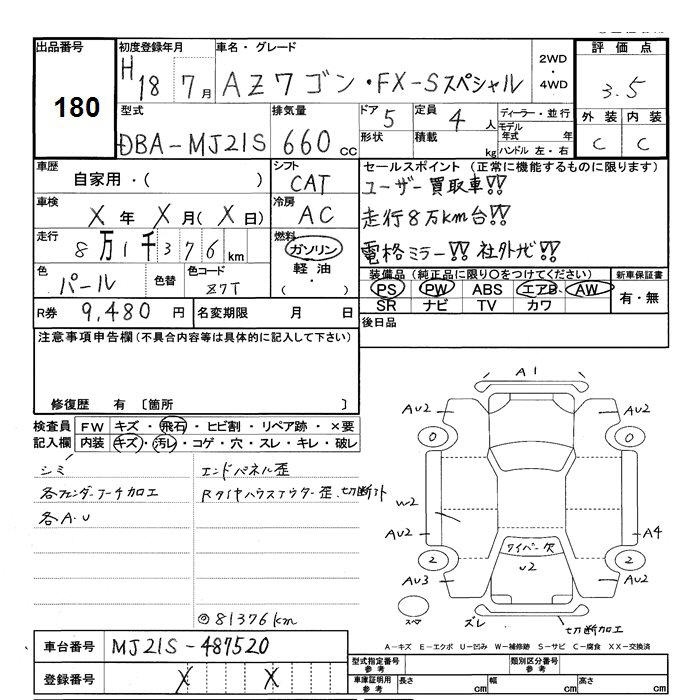 出品番号
180
初度登録年月
H18 7月
車名・グレード
AZワゴン・FX-Sスペシャル
2WD
・
4WD
評価点
3.5
型式
DBA-MJ21S
排気量
660 cc
ドア 5
形状
定員 4 人
積載 kg
ディーラー・並行
モデル年式 年
ハンドル 左・右
外装 内装
C C
車歴
自家用・( )
シフト
CAT
車検
X年 X月(X日)
冷房
AC
走行
8万1千376km
燃料
ガソリン
軽油
( ・ )
色
パール
色替
色コード
Z7T
R券 9,480円
名変期限 月 日
セールスポイント(正常に機能するものに限ります)
ユーザー買取車!!
走行8万km台!!
電格ミラー!! 社外ナビ!!
装備品(純正品に限り○をつけてください)
PS PW ABS エアB. AW
SR ナビ TV カワ
新車保証書
有・無
後日品
注意事項申告欄(不具合内容等は具体的に記入して下さい)
修復歴 有 〔箇所 〕
検査員記入欄
FW キズ・飛石・ヒビ割・リペア跡・×要
内装 キズ・汚レ・コゲ・穴・スレ・キレ・破レ
シミ
各フェンダーアーチ加工
各A.U
エンドパネル歪
Rタイヤハウスアウター歪、切断アト
81376km
A1
AU2 AU2
0 0
W2
AU2 A4
ワイパー欠
U2
2 2
AU3 AU2
スペア
ズレ
切断加工
A-キズ E-エクボ U-凹み W-補修跡 S-サビ C-腐食 XX-交換済
車台番号 MJ21S-487520
登録番号 X X
型式指定番号 参考
類別区分番号 参考
車庫証明用 参考
長さ cm 幅 cm 高さ cm